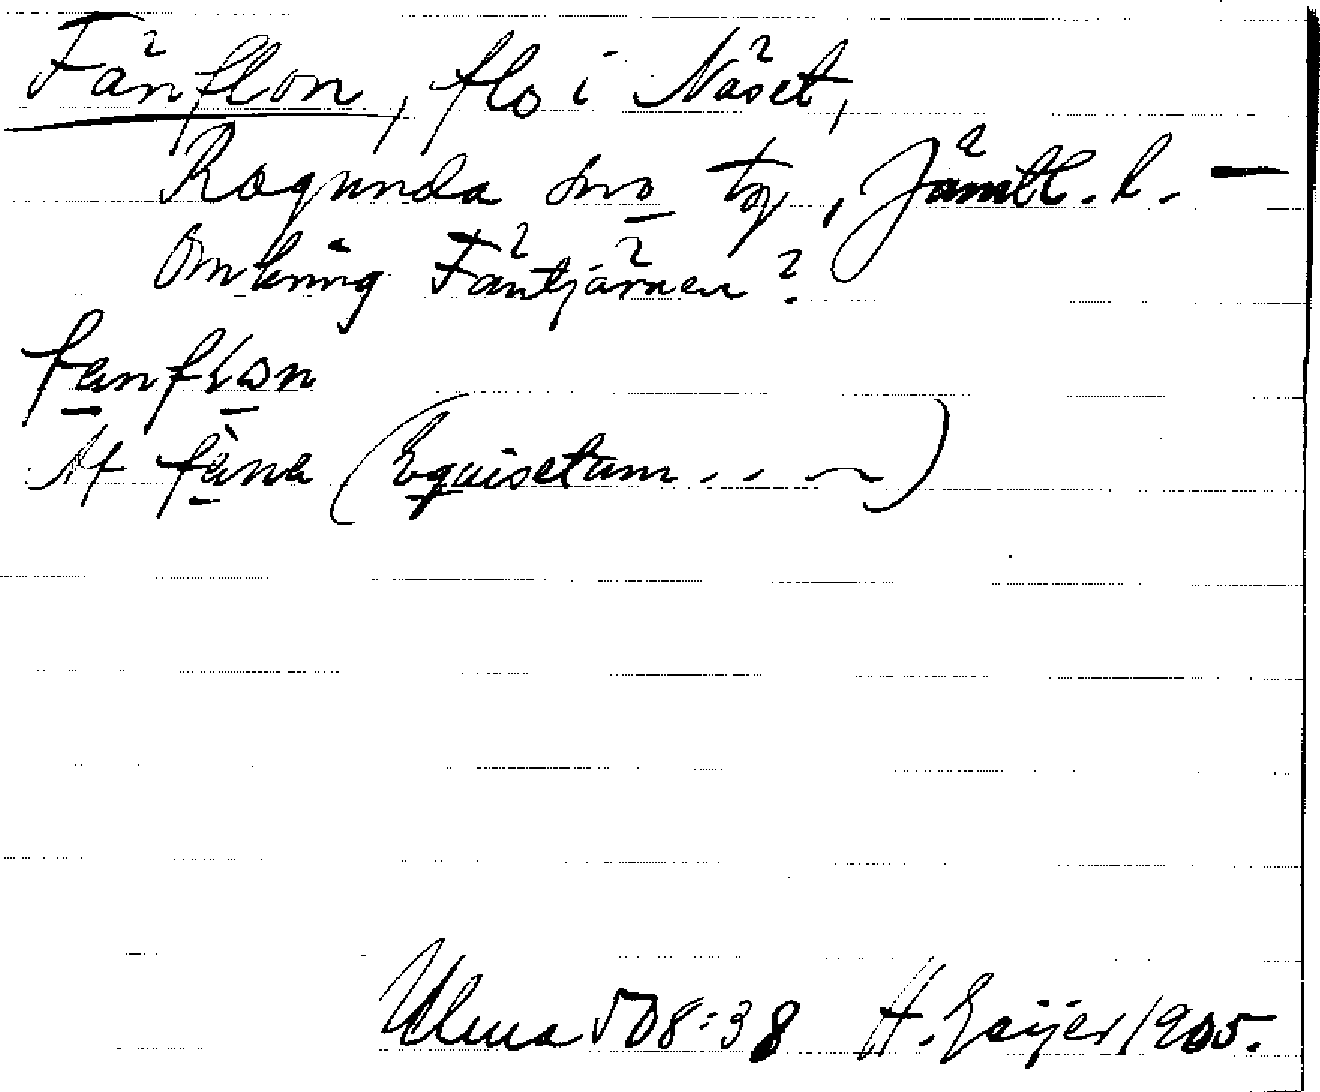 Fänflon, flo i Näset,
Ragunda sn o tg, Jämtl. l. —
Omkring Fäntjärnen?
fanflon
Af fäna (Equisetum . . ~)
Ulma 508:38 H. Geijer 1905.